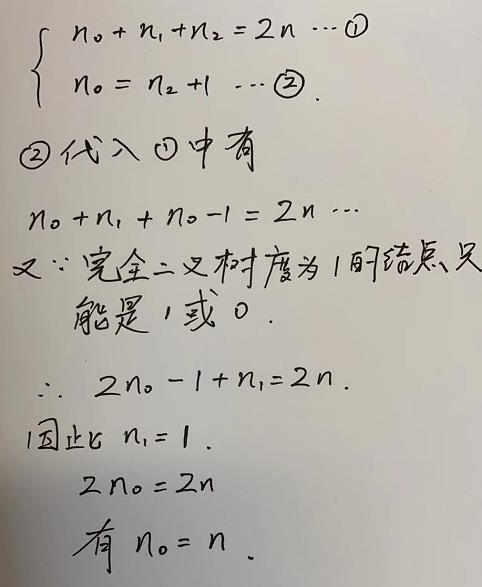 n₀ + n₁ + n₂ = 2n ... ①
n₀ = n₂ + 1 ... ②.
② 代入 ① 中有
n₀ + n₁ + n₀ - 1 = 2n ...
又∵完全二叉树度为1的结点只
能是1或0.
∴ 2n₀ - 1 + n₁ = 2n.
因此 n₁ = 1.
2n₀ = 2n
有 n₀ = n.